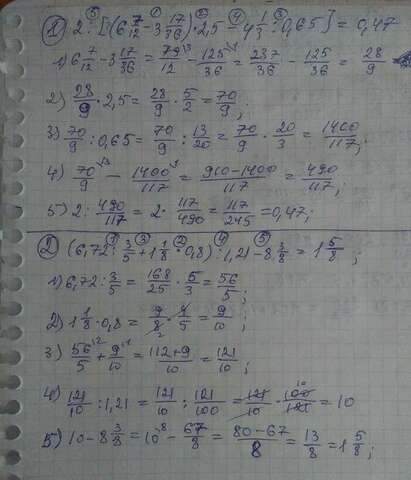 1) 2 : [(6 7/12 - 3 17/36) · 2,5 - 4 1/3 : 0,65] = 0,47
1) 6 7/12 - 3 17/36 = 79/12 - 125/36 = 237/36 - 125/36 = 28/9
2) 28/9 · 2,5 = 28/9 · 5/2 = 70/9;
3) 70/9 : 0,65 = 70/9 : 13/20 = 70/9 · 20/3 = 1400/117;
4) 70/9 - 1400/117 = 910-1400/117 = 490/117;
5) 2 : 490/117 = 2 · 117/490 = 117/245 = 0,47;
2) (6,72 : 3/5 + 1 1/8 · 0,8) : 1,21 - 8 3/8 = 1 5/8;
1) 6,72 : 3/5 = 168/25 · 5/3 = 56/5;
2) 1 1/8 · 0,8 = 9/8 · 4/5 = 9/10;
3) 56/5 + 9/10 = 112+9/10 = 121/10;
4) 121/10 : 1,21 = 121/10 : 121/100 = 121/10 · 100/121 = 10
5) 10 - 8 3/8 = 10 - 67/8 = 80-67/8 = 13/8 = 1 5/8;